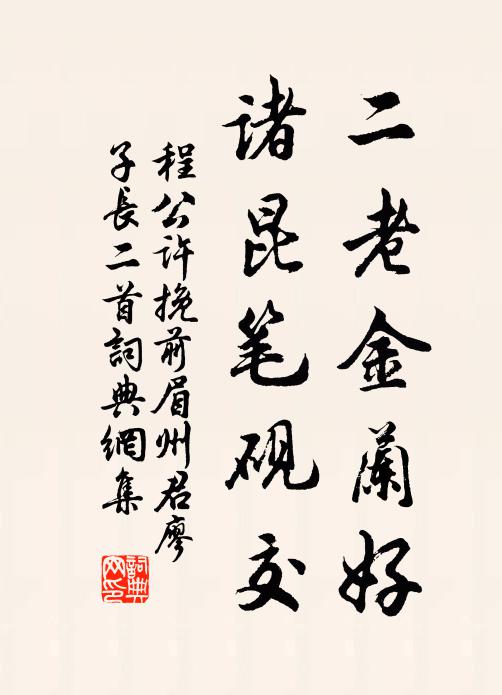 二老金蘭好
诸昆笔砚交
程公许挽前眉州君廖
子長二首詞典網集
詞典网印